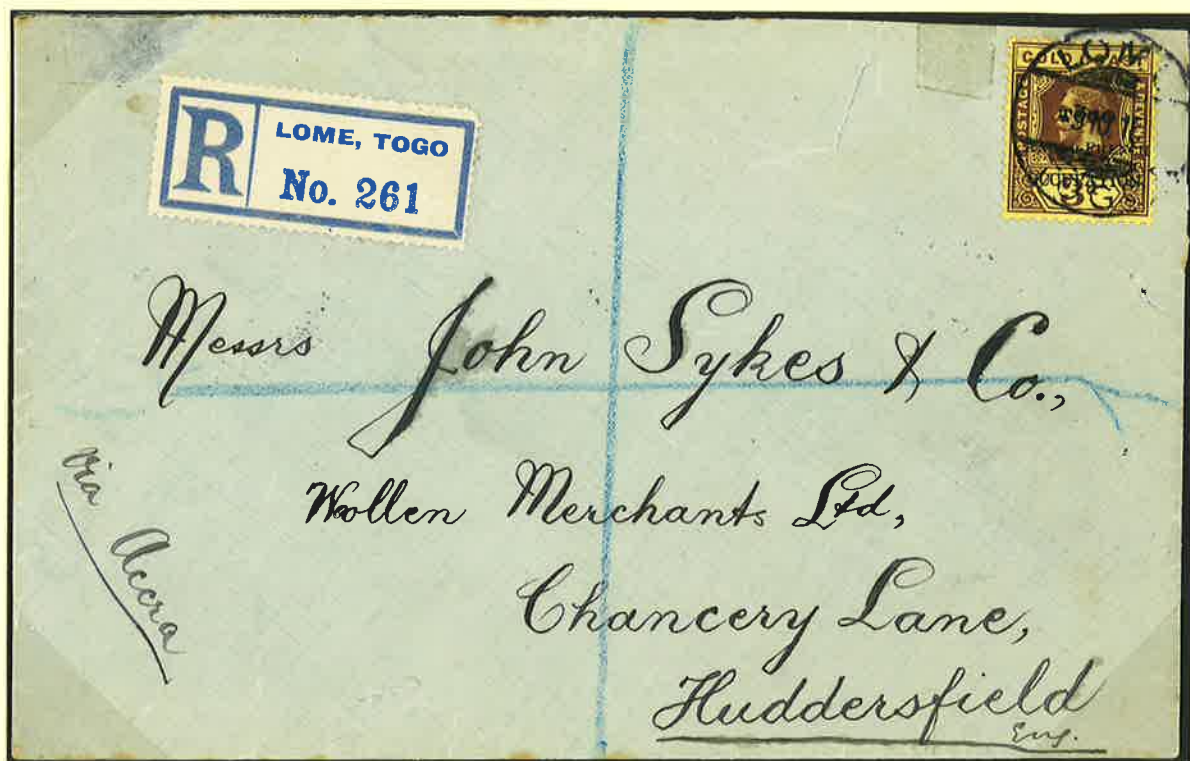 R
LOME, TOGO
No. 261
GOLD COAST
POSTAGE
REVENUE
LOM
Messrs John Sykes & Co.,
Wollen Merchants Ltd,
Chancery Lane,
Huddersfield
Eng.
via Accra